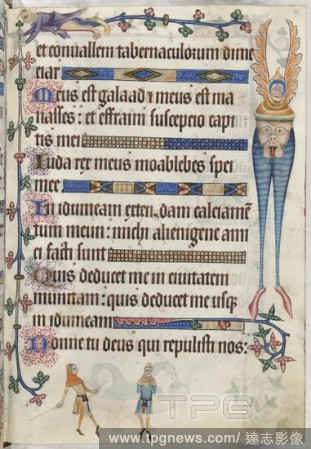 et conuallem tabernaculorum dime
tiar
Meus est galaad & meus est ma
nasses: et effraim suscepcio capi
tis mei
Iuda rex meus moab lebes spei
mee
In idumeam extendam calciamen
tum meum: michi alienigene ami
ci facti sunt
Quis deducet me in ciuitatem
munitam: quis deducet me usq
in idumeam
Nonne tu deus qui repulisti nos:
TPG
www.tpgnews.com/達志影像